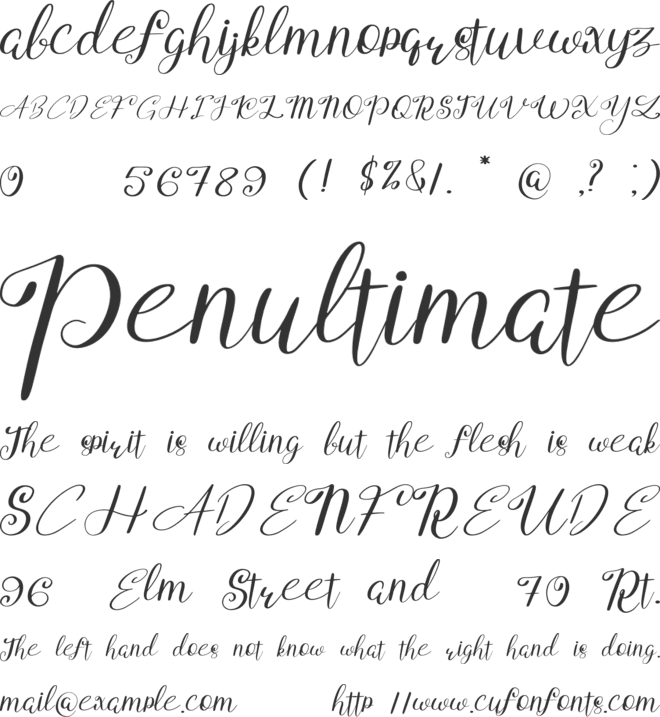 abcdefghijklmnopqrstuvwxyz
ABCDEFGHIJKLMNOPQRSTUVWXYZ
0 56789 (! $%&/. * @ ,? ;)
Penultimate
The spirit is willing but the flesh is weak
SCHADENFREUDE
96 Elm Street and 70 Rt.
The left hand does not know what the right hand is doing.
mail@example.com http //www.cufonfonts.com